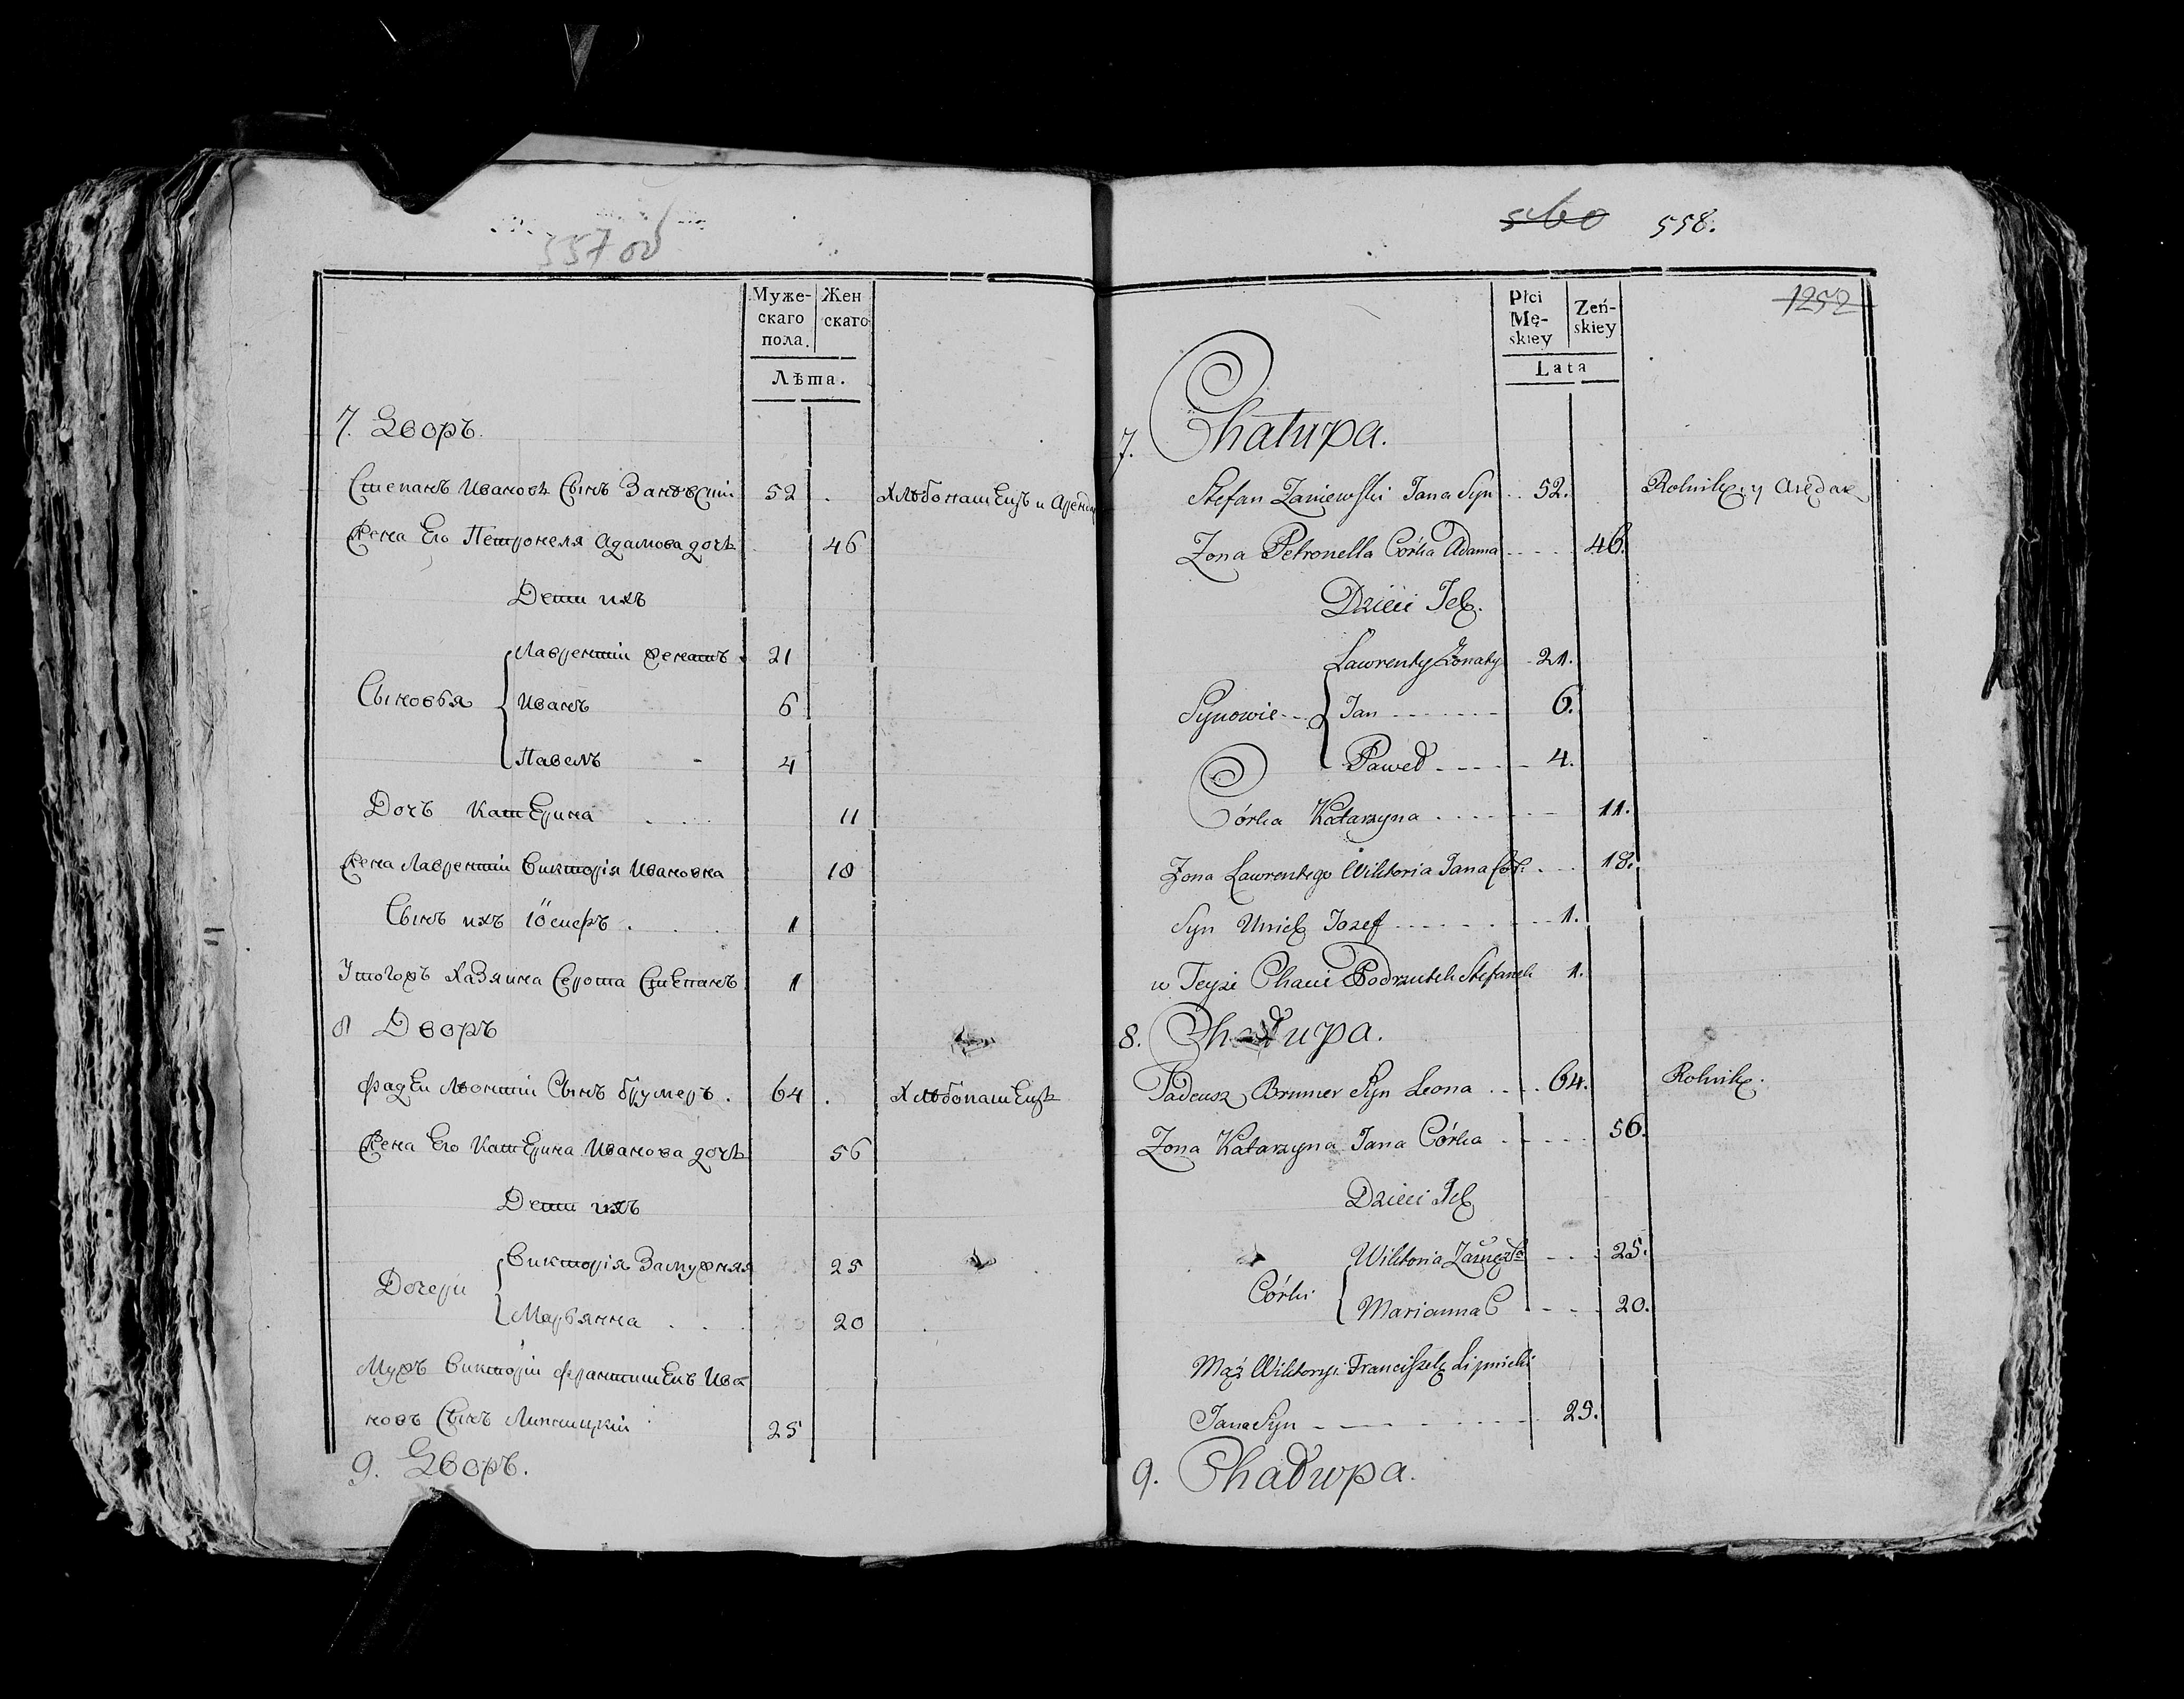 557 об
Муже-
скаго
пола.
Жен
скаго
Лѣта.
7. Дворъ.
Степанъ Ивановъ Сынъ Заневскій 52 Хлѣбопашецъ и Аренда
Жена Его Петронеля Адамова дочь 46
Дети ихъ
Лаврентій женатъ 21
Сыновья Иванъ 6
Павелъ - 4
Дочъ Катерина 11
Жена Лаврентіи Викторія Ивановна 18
Сынъ ихъ Іосифъ 1
У тогожъ хазяина Серота Степанъ 1
8 Дворъ
Фадеи Леонтіи Сынъ Брумеръ 64 Хлѣбопашецъ
Жена Его Катерина Иванова дочь 56
Дети ихъ
Викторія Замужняя 25
Дочери
Марьянна 20
Мужъ Викторіи Францишекъ Ива
новъ Сынъ Липницкій 25
9. Дворъ.
560 558.
1252
Płci
Mę-
skiey
Zeń-
skiey
Lata
7. Chałupa.
Stefan Zaniewski Jana Syn 52. Rolnik y Arędarz
Zona Petronella Córka Adama 46.
Dzieci Ich.
Lawrenty Zonaty 21.
Synowie Jan 6.
Paweł 4.
Córka Katarzyna 11.
Zona Lawrentego Wiktoria Jana Cór. 18.
Syn Unich Jozef 1.
w Teyże Chacie Podrzutek Stefanek 1.
8. Chałupa.
Tadeusz Brumer Syn Leona 64. Rolnik.
Zona Katarzyna Jana Córka 56.
Dzieci Ich
Wiktoria Zamężła 25.
Córki
Marianna 20.
Mąż Wiktoryi Franciszek Lipnicki
Jana Syn 25.
9. Chałupa.